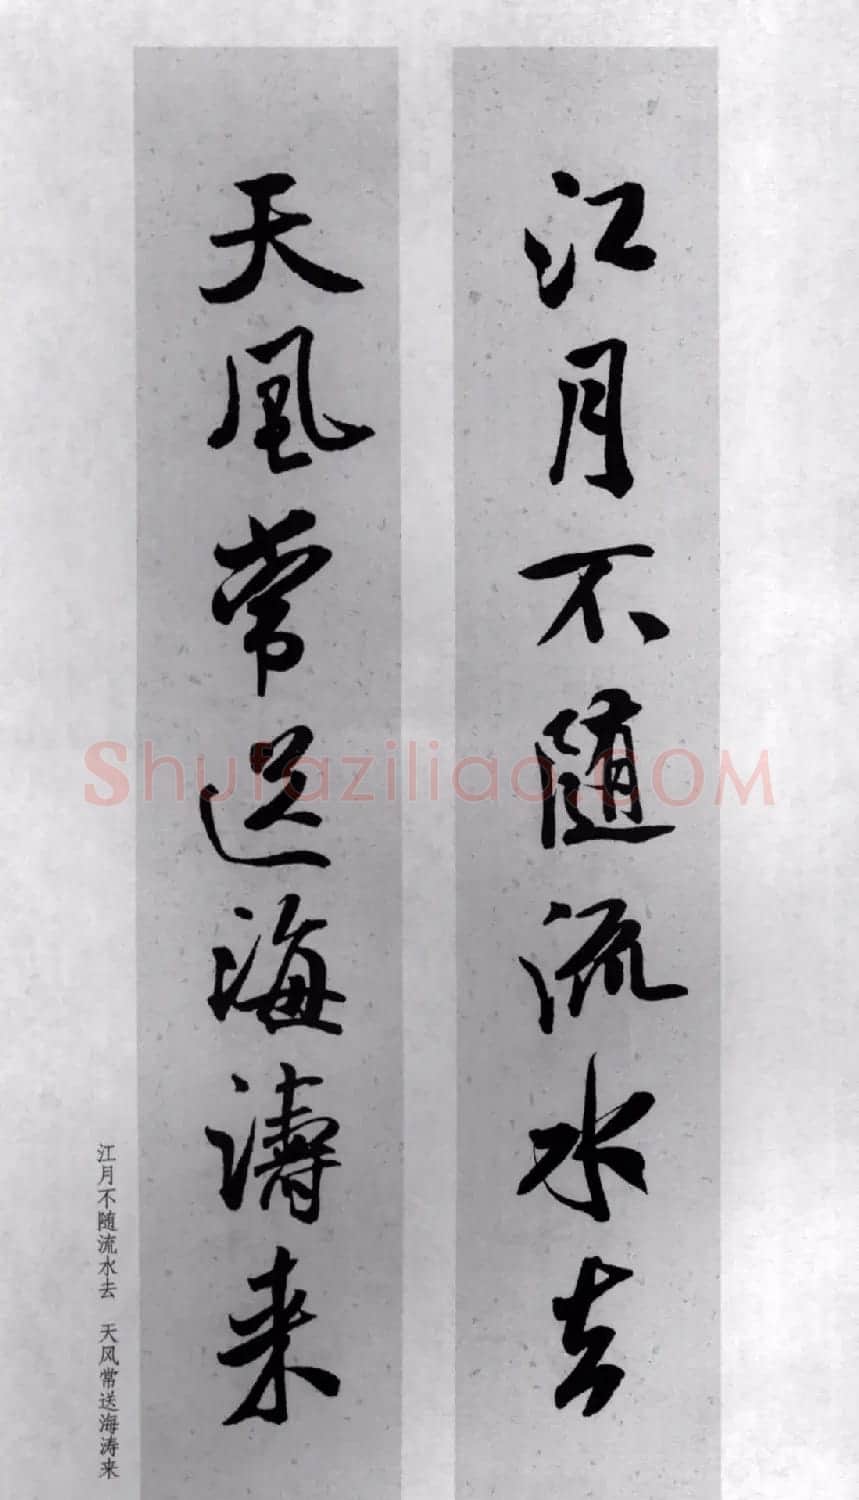 江月不随流水去
天风常送海濤来
江月不随流水去 天风常送海涛来
Shufaziliao.COM